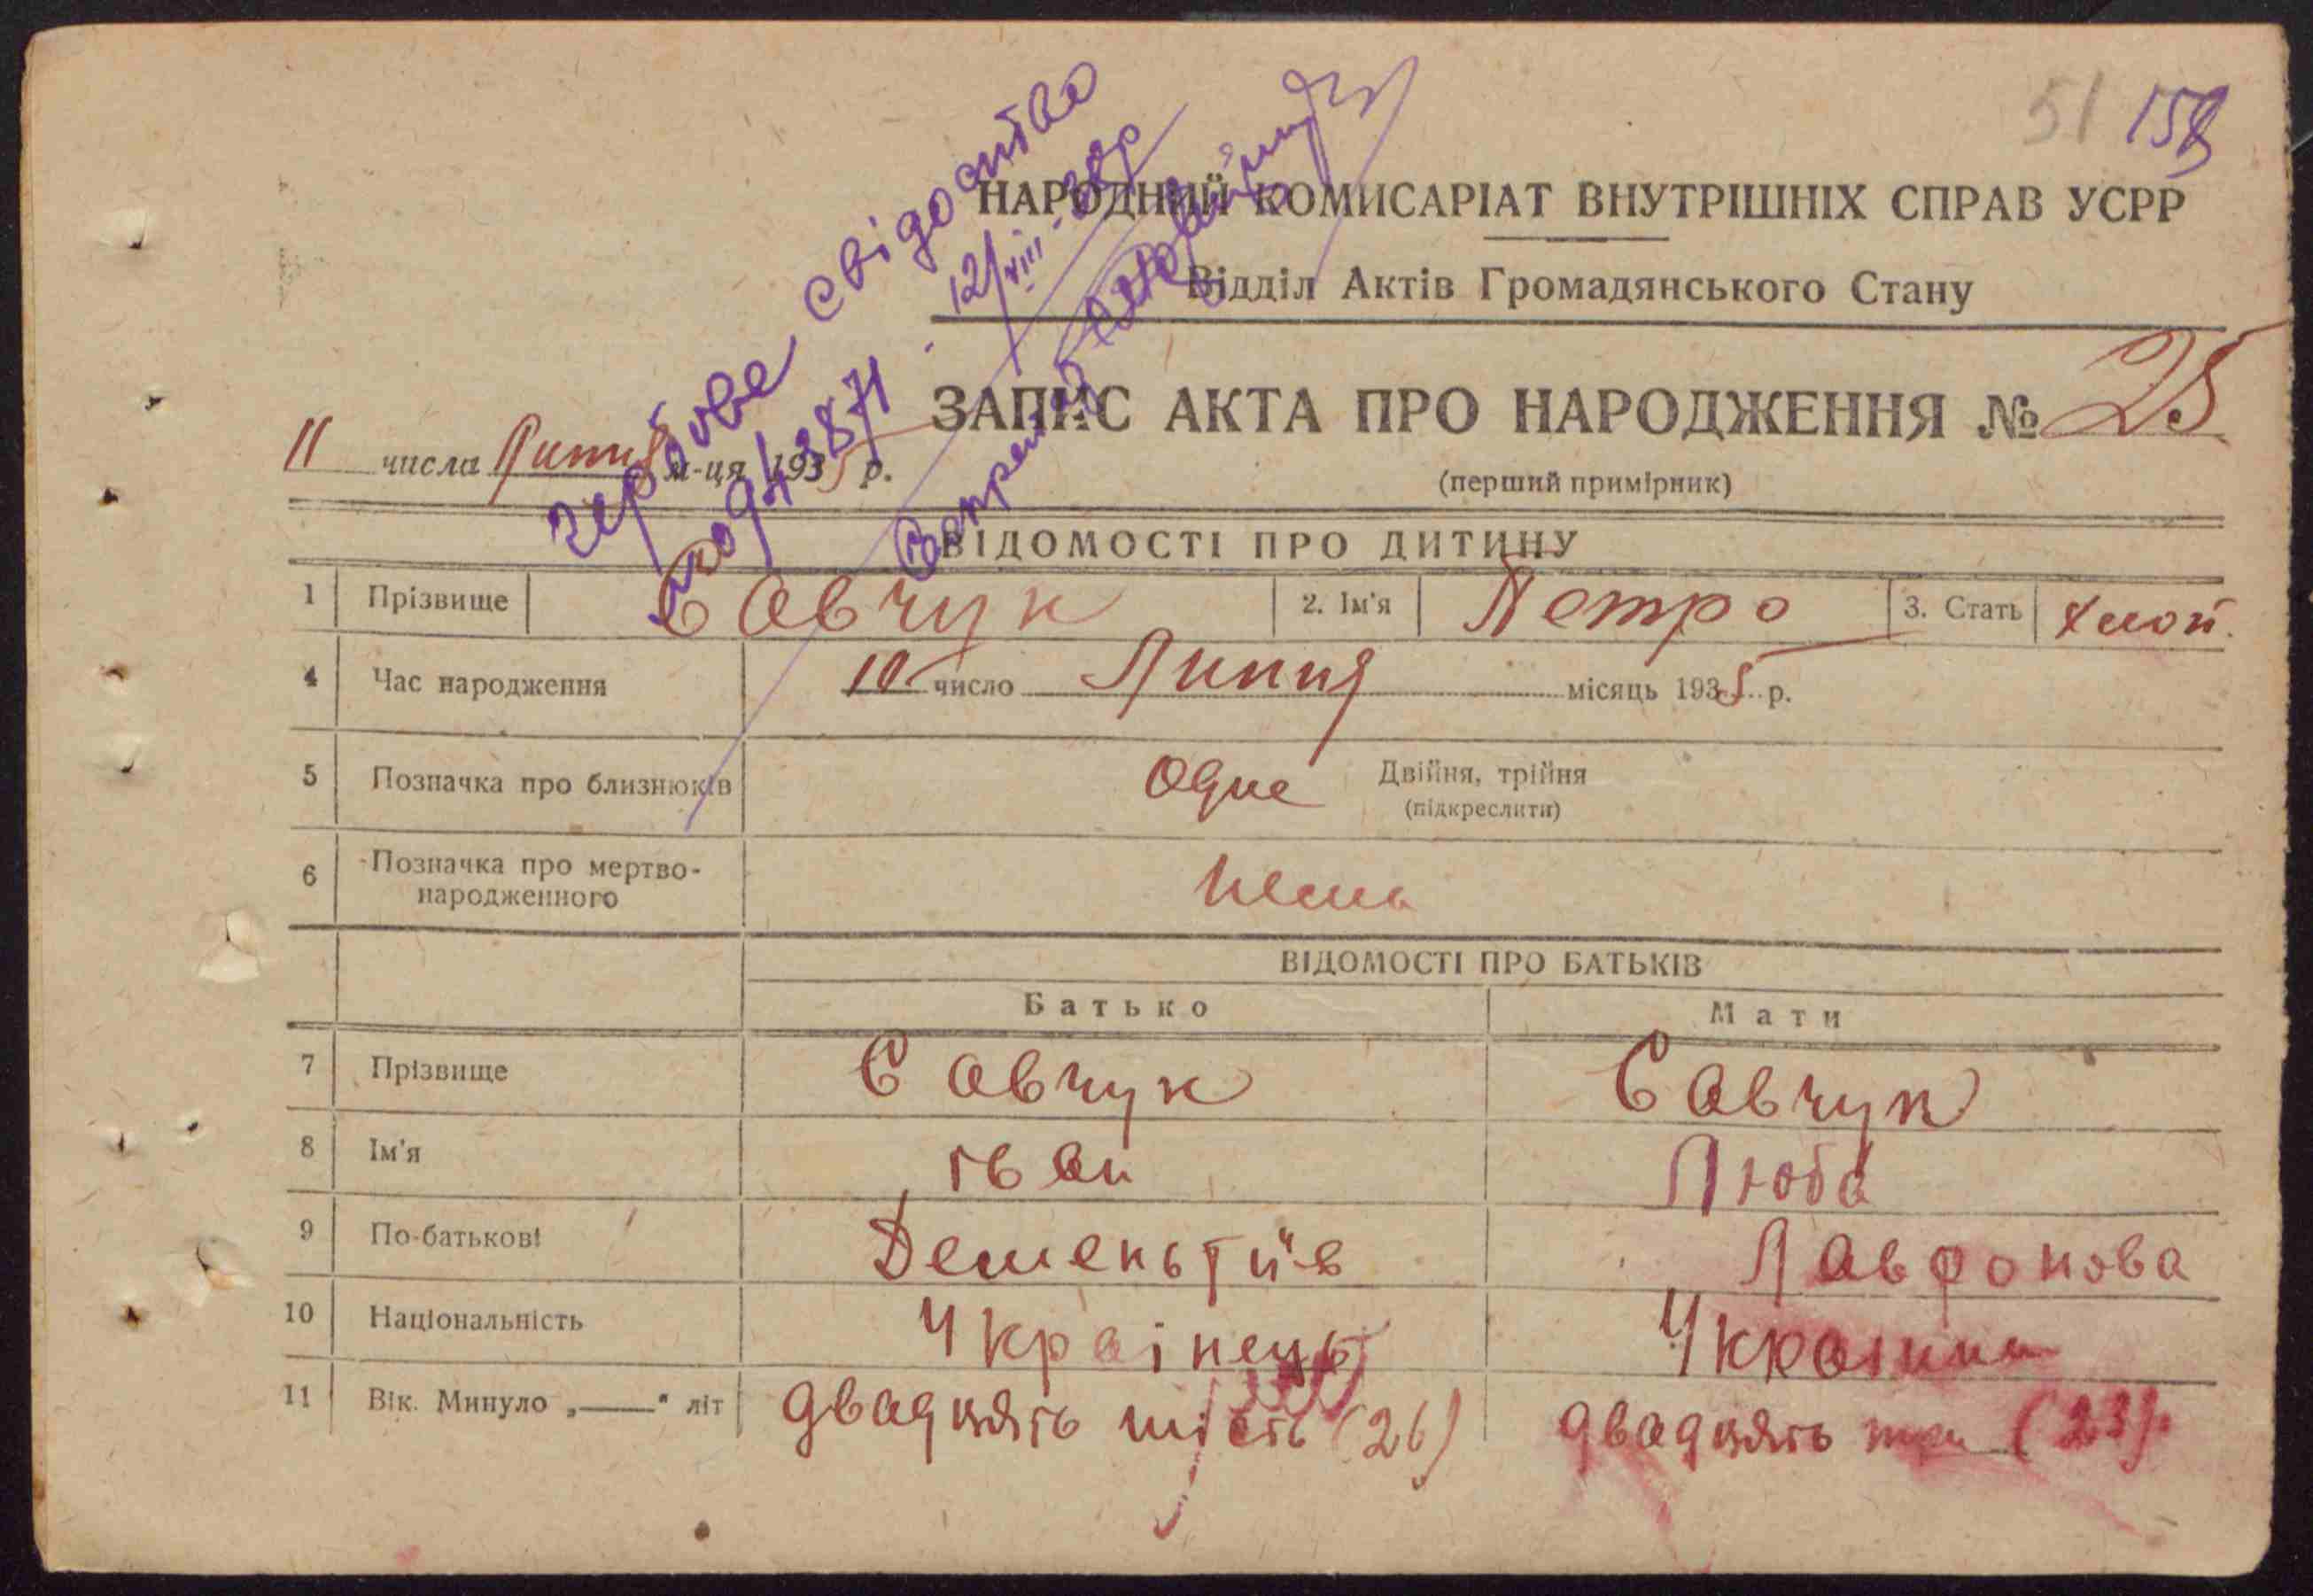 51 159
НАРОДНИЙ КОМИСАРІАТ ВНУТРІШНІХ СПРАВ УСРР
Відділ Актів Громадянського Стану
гербове свідоцтво
12/VIII-38р
ЗАПИС АКТА ПРО НАРОДЖЕННЯ № 25
11 числа Липня м-ця 1935 р.
(перший примірник)
ВІДОМОСТІ ПРО ДИТИНУ
1 Прізвище Савчук 2. Ім'я Петро 3. Стать хлоп.
4 Час народження 10 число Липня місяць 1935 р.
5 Позначка про близнюків Одне Двійня, трійня
(підкреслити)
6 Позначка про мертво-
народженного
ВІДОМОСТІ ПРО БАТЬКІВ
Батько Мати
7 Прізвище Савчук Савчук
8 Ім'я Іван Люба
9 По-батькові Дементиїв
10 Національність Українець
11 Вік. Минуло „—" літ двадцять шість (26) двадцять три (23).